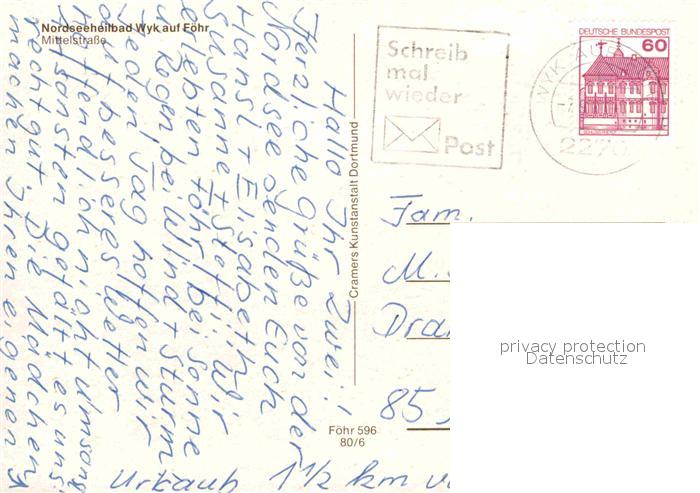 Nordseeheilbad Wyk auf Föhr
Mittelstraße
Hallo Ihr Zwei!
Herzliche Grüße von der
Nordsee senden Euch
Hansl + Elisabeth
Susanne + Steffi! Wir
erlebten Föhr bei Sonne
u. Regen, bei Wind + Sturm
Jeden Tag hoffen wir
auf besseres Wetter
hoffendlich nicht umsonst
Ansonsten gefällt es uns
recht gut. Die Mädchen
machen Ihren eigenen
Urlaub 1 1/2 km
Cramers Kunstanstalt Dortmund
Föhr 596
80/6
Schreib
mal
wieder
Post
DEUTSCHE BUNDESPOST
60
WYK AUF
2270
Fam.
M.
85
privacy protection
Datenschutz